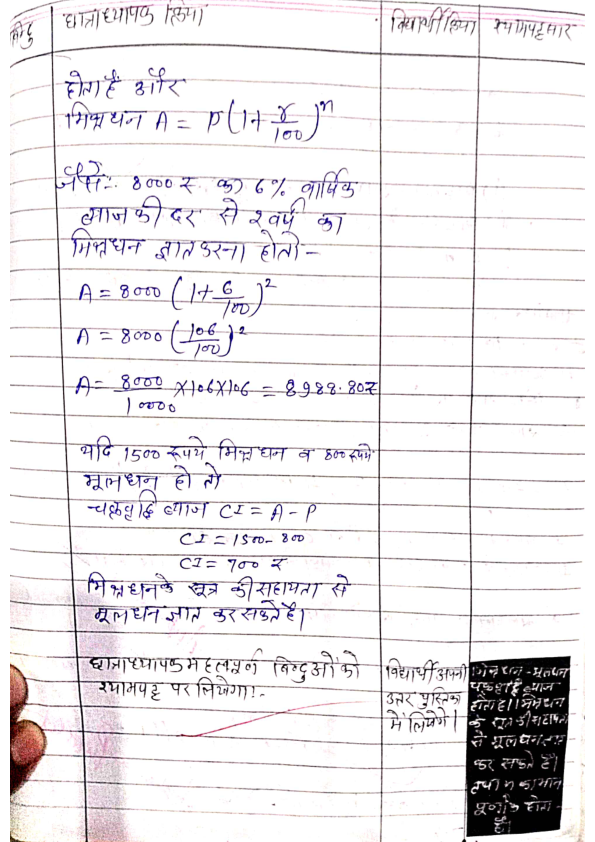 छात्राध्यापक क्रिया
विद्यार्थी क्रिया
श्यामपट्ट सार
होता है और
मिश्रधन A = P(1+r/100)^n
जैसे:- 8000 ₹ का 6% वार्षिक
ब्याज की दर से 2 वर्ष का
मिश्रधन ज्ञात करना हो तो-
A = 8000 (1+6/100)^2
A = 8000 (106/100)^2
A = 8000/10000 ×106×106 = 8988.80₹
यदि 1500 रुपये मिश्रधन व 800 रुपये
मूलधन हो तो
चक्रवृद्धि ब्याज CI = A - P
CI = 1500-800
CI = 700 ₹
मिश्रधन के सूत्र की सहायता से
मूलधन ज्ञात कर सकते है।
छात्राध्यापक महत्वपूर्ण बिन्दुओं को
श्यामपट्ट पर लिखेगा।-
विद्यार्थी अपनी
उत्तर पुस्तिका
में लिखेंगे।
मिश्रधन - मूलधन
चक्रवृद्धि ब्याज
होता है। मिश्रधन
के सूत्र की सहायता
से मूलधन ज्ञात
कर सकते है।
तथा n का मान
पूर्णांक होता
है।